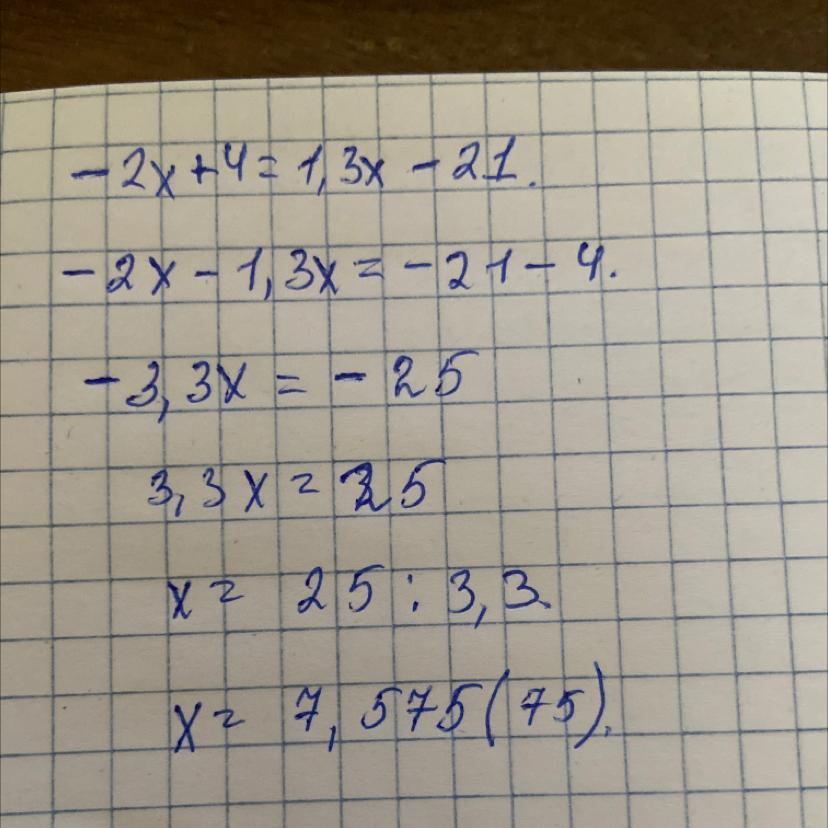 -2x+4=1,3x-21.
-2x-1,3x=-21-4.
-3,3x=-25
3,3x=25
x=25:3,3.
x=7,575(75).